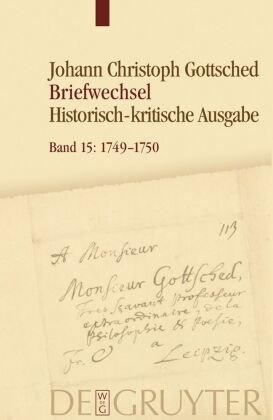 Johann Christoph Gottsched
Briefwechsel
Historisch-kritische Ausgabe
Band 15: 1749–1750
113
A Monsieur
Monsieur Gottsched,
Tres sçavant Professeur
extraordinaire, de la
Philosophie & Poesie,
Fr. C a Leipzig.
DE GRUYTER